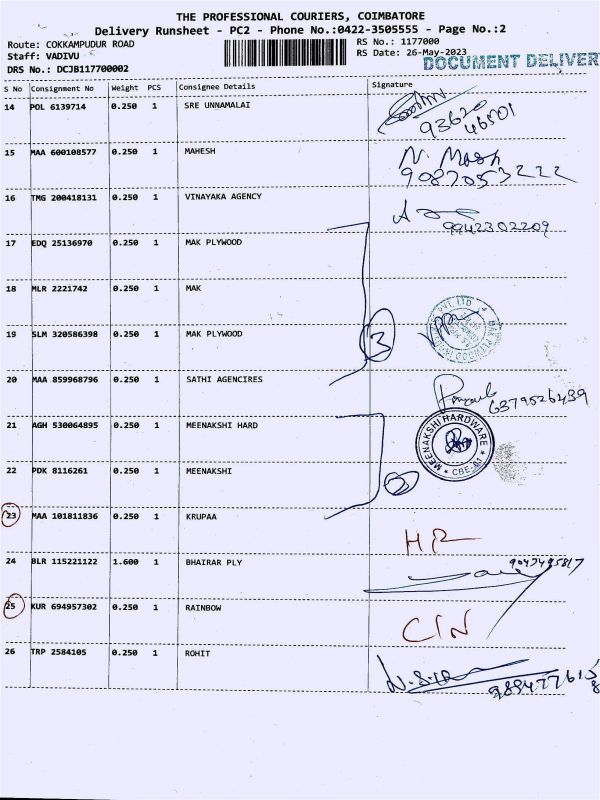 THE PROFESSIONAL COURIERS, COIMBATORE
Delivery Runsheet - PC2 - Phone No.:0422-3505555 - Page No.:2
Route: COKKAMPUDUR ROAD
RS No.: 1177000
Staff: VADIVU
RS Date: 26-May-2023
DOCUMENT DELIVER
DRS No.: DCJB117700002
S No Consignment No Weight PCS Consignee Details Signature
14 POL 6139714 0.250 1 SRE UNNAMALAI
93620
46501
15 MAA 600108577 0.250 1 MAHESH
9087053222
16 TMG 200418131 0.250 1 VINAYAKA AGENCY
9942302209
17 EDQ 25136970 0.250 1 MAK PLYWOOD
18 MLR 2221742 0.250 1 MAK
19 SLM 320586398 0.250 1 MAK PLYWOOD
3
20 MAA 859968796 0.250 1 SATHI AGENCIRES
6379526439
21 AGH 530064895 0.250 1 MEENAKSHI HARD
MEENAKSHI HARDWARE
CBE-01
22 PDK 8116261 0.250 1 MEENAKSHI
2
23 MAA 101811836 0.250 1 KRUPAA
HR
24 BLR 115221122 1.600 1 BHAIRAR PLY
25 KUR 694957302 0.250 1 RAINBOW
CIN
26 TRP 2584105 0.250 1 ROHIT